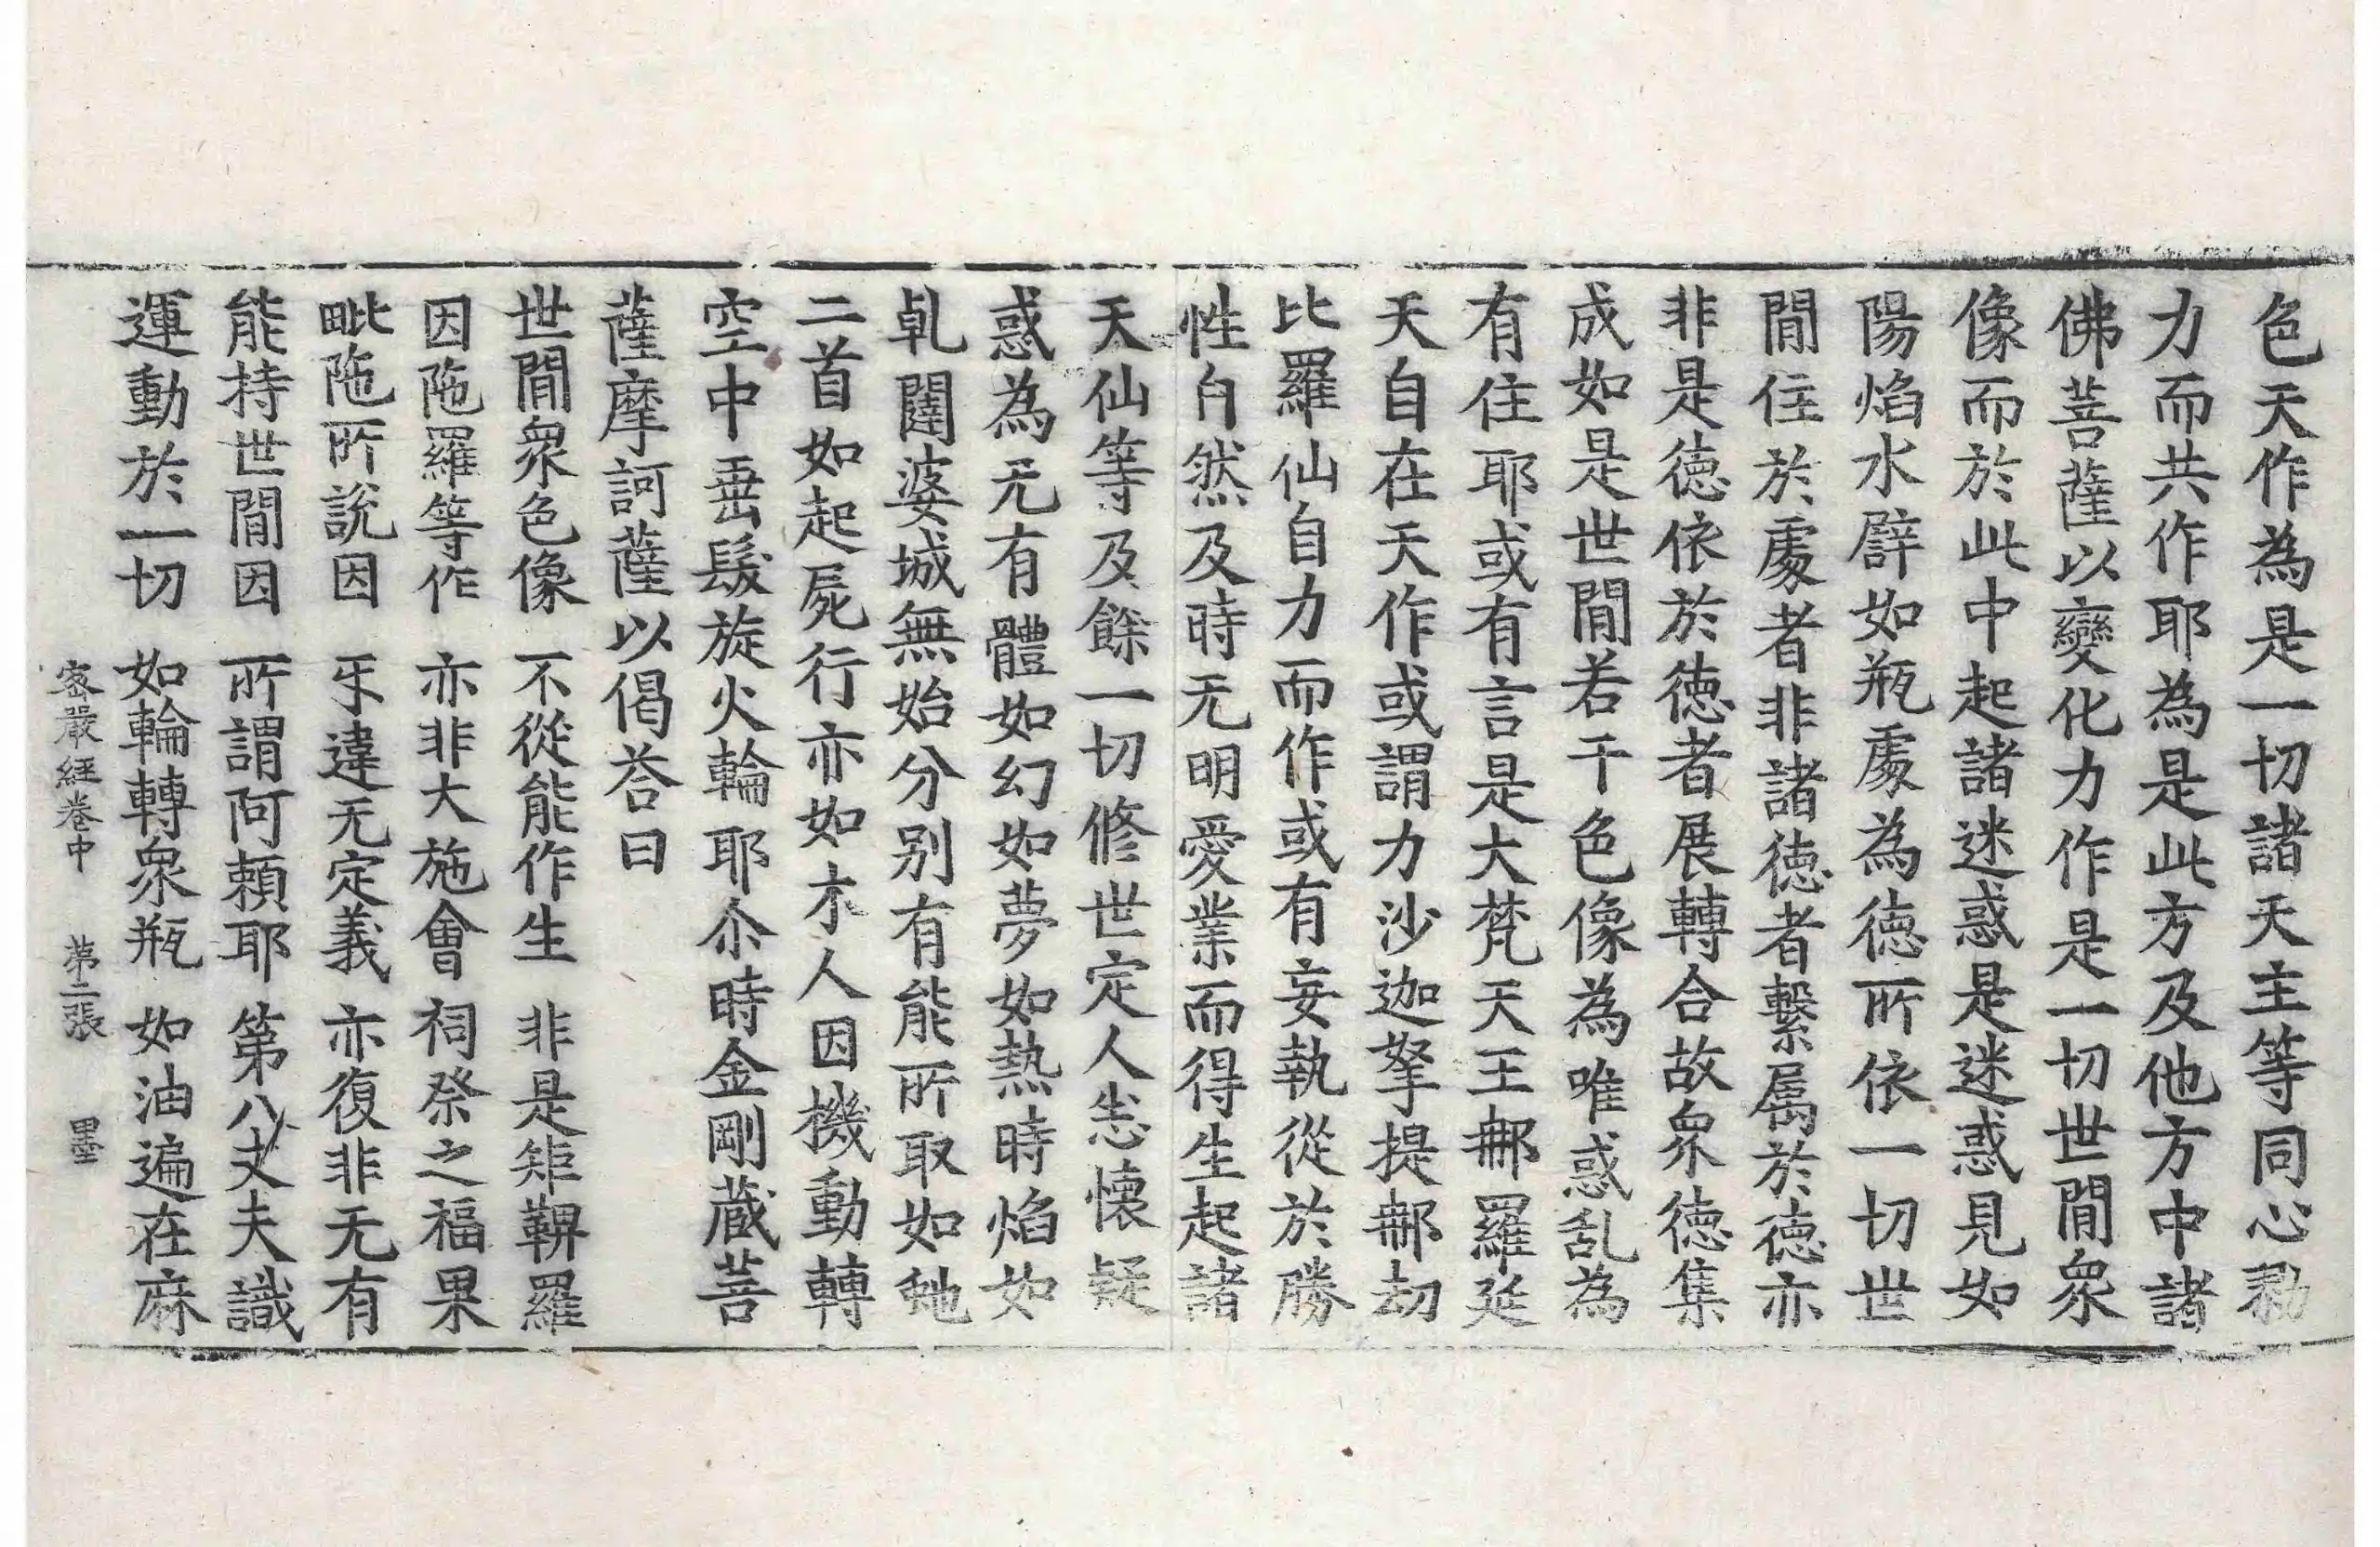 色天作為是一切諸天主等同心勠
力而共作耶為是此方及他方中諸
佛菩薩以變化力作是一切世間衆
像而於此中起諸迷惑是迷惑見如
陽焰水譬如瓶處為德所依一切世
間住於處者非諸德者繫属於德亦
非是德依於德者展轉合故衆德集
成如是世間若干色像為唯惑乱為
有住耶或有言是大梵天王䣸羅延
天自在天作或謂力沙迦拏提䣸劫
比羅仙自力而作或有妄執從於勝
性自然及時无明愛業而得生起諸
天仙等及餘一切修世定人悉懷疑
惑為无有體如幻如夢如熱時焰如
乹闥婆城無始分别有能所取如虵
二首如起屍行亦如木人因機動轉
空中垂髮旋火輪耶尒時金剛蔵菩
薩摩訶薩以偈荅曰
世間衆色像　不從能作生　非是矩鞞羅
因陁羅等作　亦非大施會　祠祭之福果
毗陁所說因　㸦違无定義　亦復非无有
能持世間因　所謂阿頼耶　第八丈夫識
運動於一切　如輪轉衆瓶　如油遍在麻
密嚴経卷中　第二張　墨